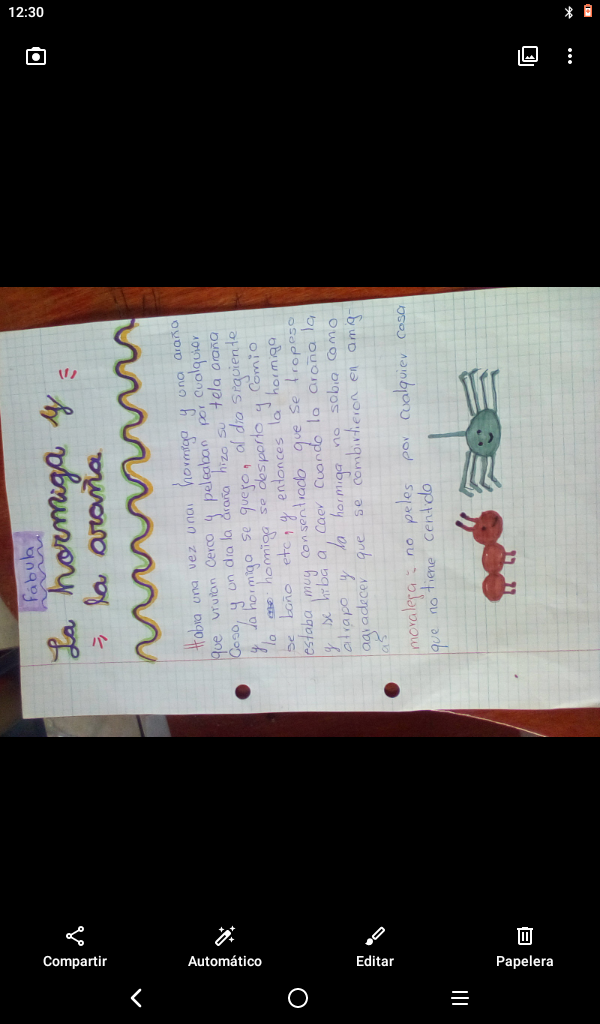 12:30
Fabula
La hormiga y
la araña
Habia una vez una hormiga y una araña
que vivian cerca y peleaban por cualquier
cosa, y un dia la araña hizo su tela araña
y la hormiga se quejo, al dia siguiente
la hormiga se desperto y comio
se baño etc, y entonces la hormiga
estaba muy consentrada que se tropeso
y se hiba a caer cuando la araña la
atrapo y la hormiga no sabia como
agradecer que se combirtieron en amig-
as
moralega: no peles por cualquier cosa
que no tiene centido
Compartir
Automático
Editar
Papelera